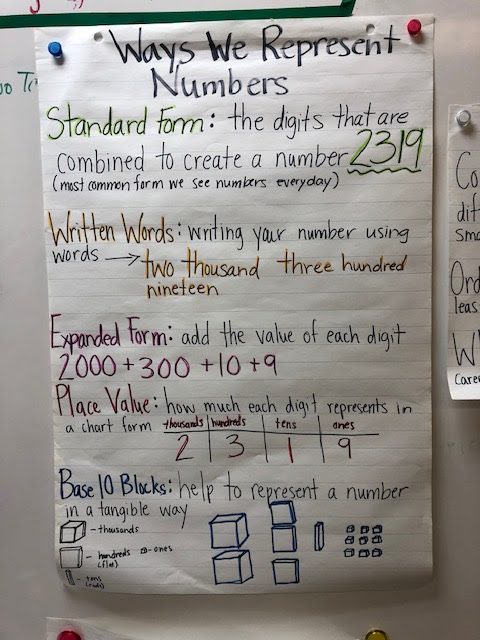 oo Ti
Ways We Represent
Numbers
Standard Form: the digits that are
combined to create a number 2319
(most common form we see numbers everyday)
Written Words: writing your number using
words → two thousand three hundred
nineteen
Expanded Form: add the value of each digit
2000 + 300 + 10 + 9
Place Value: how much each digit represents in
a chart form thousands hundreds tens ones
2 3 1 9
Base 10 Blocks: help to represent a number
in a tangible way
- thousands
- hundreds (flat) - ones
- tens
Co
diff
sma
Ord
leas
W
Caree